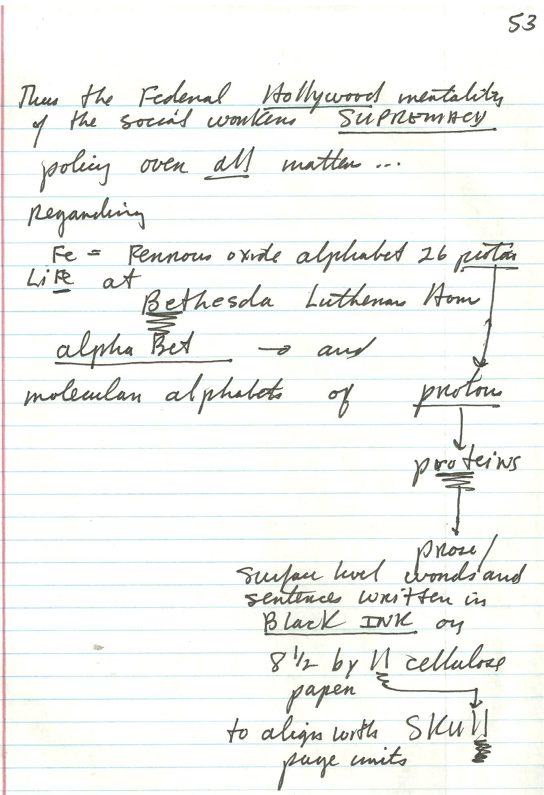 53
Thus the Federal Hollywood mentality
of the social workers SUPREMACY
policy over all matter ...
Regarding
Fe = Ferrous oxide alphabet 26 proton
LiFe at
Bethesda Lutheran Hom
alpha Bet → and
molecular alphabets of protons
proteins
prose/
surface level words and
sentences written in
Black INK on
8 1/2 by 11 cellulose
paper
to align with SKull
page units